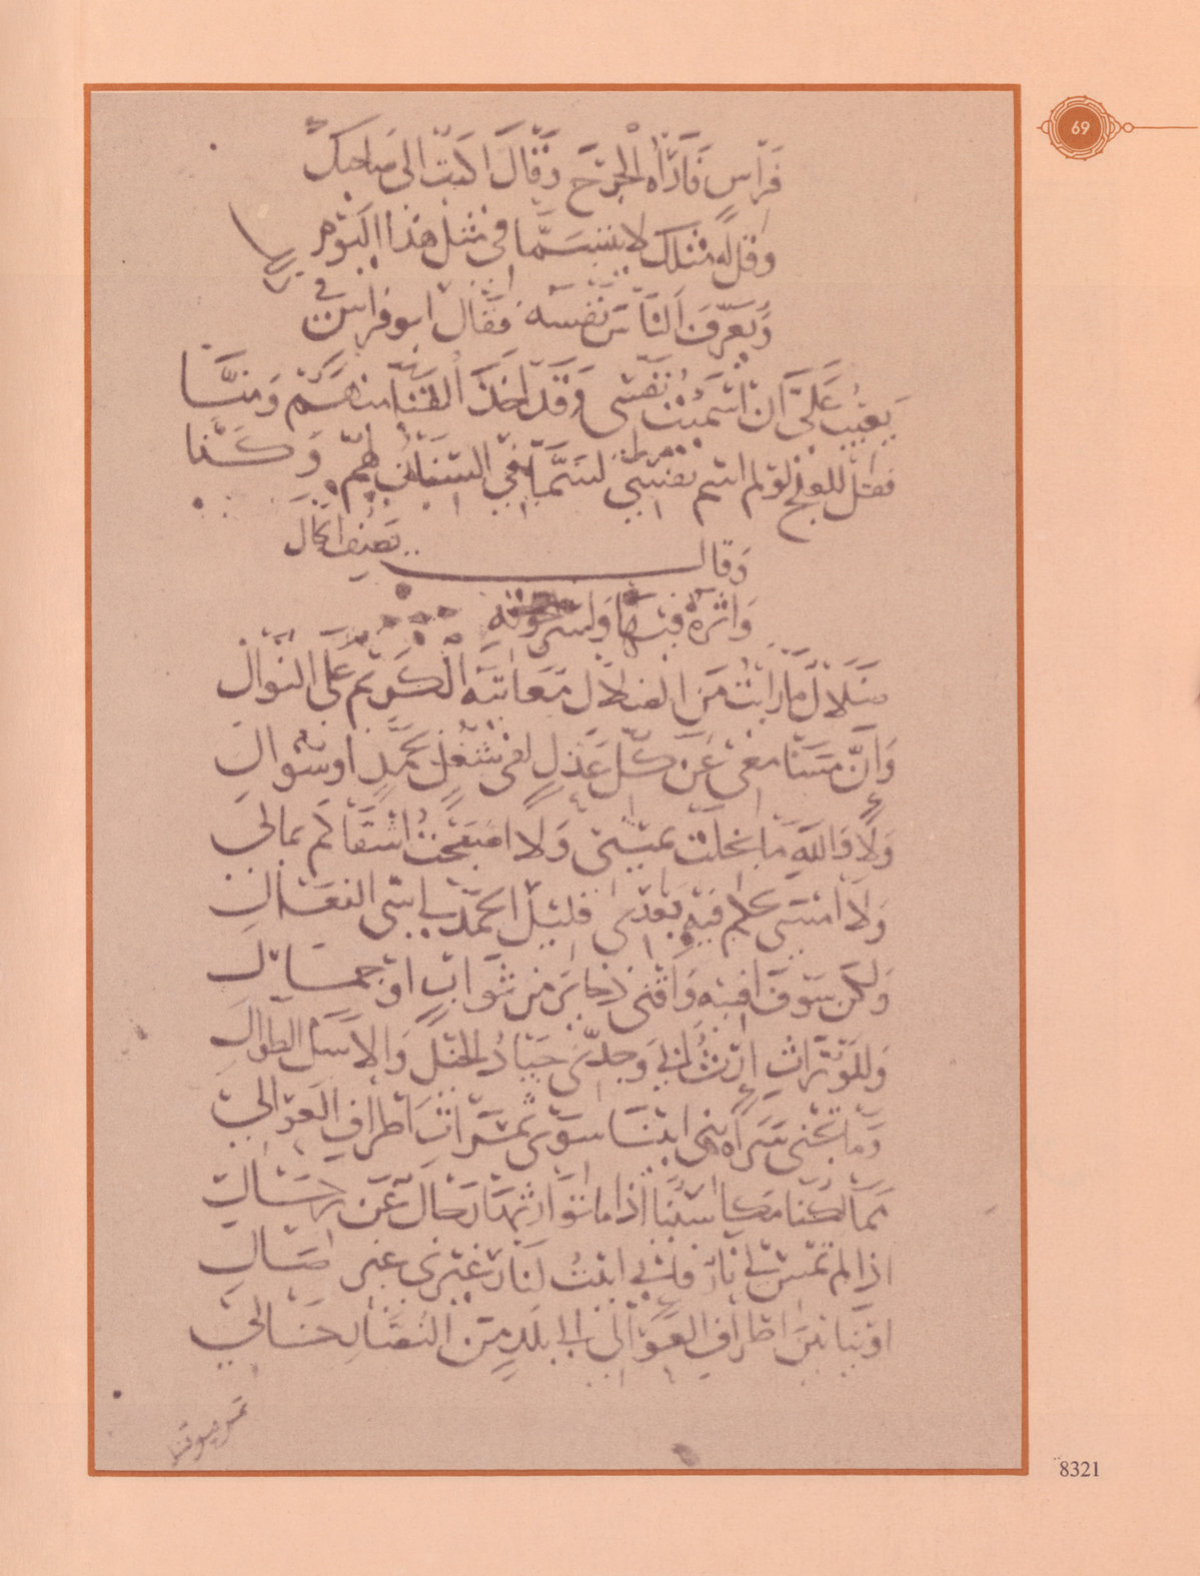 69
فَرَاسٍ فَارَاهُ الجرح وَقَالَ اكتب الى صاحبك
وقل له مثلك لا يتسمَّا في مثل هذا اليوم
وَيُعَرِّفَ النَّاسَ نَفْسَه فقال ابو فراس
يَعيبُ عَلَيَّ ان اسْمَيْتُ نَفْسي وَقَدْ اَخَذَ القَنَا منهم وَمنَّا
فقل للعلج لو لم اسم نفسي لسَمَّا في السنان لهم وَكَنَّا
وَقال يصف الحال
وَاثره فيها ولسرْ
ضَلَال مَا رَايْتُ مَن الضلال مَعَاتبَه الكَريْم عَلى النَّوال
وَانَّ مسَامعي عَنْ كُلِّ عَذْلٍ لفي شُغُلٍ بحَمْدٍ او سُوال
وَلَا وَاللهِ مَا بَخلَتْ يميني وَلا اصْبَحْتُ اشْقَاكم بمالي
وَلَا امسى بحكم فيه بَعْدى قليْل الحَمْد لي سئ الفعَال
وَلكن سَوفَ افنيه وَاقنى ذخَائِرَ من ثَوابٍ او جمال
وَللوُرَّاث ارْث ابي وَجدّى جيَادُ الخيْل وَالاسَل الطّوال
وَمَا تَجْنى سَراة بني ابيْنَا سوَى ثَمَرَات اَطراف العَوالي
مَمَالكُنا مكاسبُنا اذا مَا تَوَارَثهَا رجَال عَنْ رجَال
اذا لم تمس لي نار فانى ابيْتُ لنَار غَيْرى غير صَال
اوَيْنَا بيْنَ اطْراف العَوالى الى بلدٍ منَ النُصَّار خَالي
8321